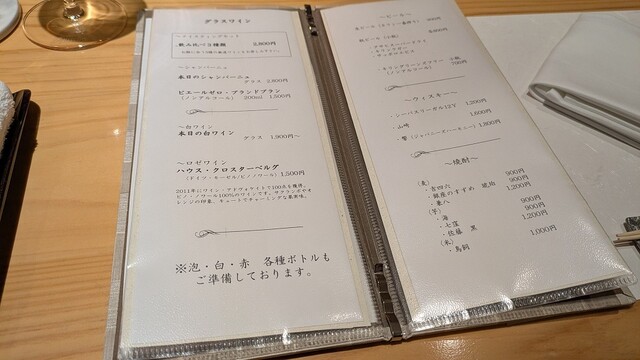 グラスワイン
飲み比べ3種類 3,800円
～シャンパーニュ
本日のシャンパーニュ
グラス 2,800円
ピエールゼロ・ブランドブラン
(ノンアルコール) 200ml 1,500円
～白ワイン
本日の白ワイン
グラス 1,900円～
～ロゼワイン
ハウス・クロスターベルグ
(ドイツ・モーゼル/ピノノワール) 1,500円
2011年にワイン・アドヴォケイトで100点を獲得。
ピノ・ノワール100%のワインです。
※泡・白・赤 各種ボトルも
ご準備しております。
～ビール～
(ノンアルコール) 700円
～ウィスキー～
・シーバスリーガル12Y 1,200円
・山崎 1,600円
・響(ジャパニーズハーモニー) 1,800円
～焼酎～
(麦)
・吉四六 900円
・銀座のすすめ 琥珀 900円
・兼八 1,200円
(芋)
・海 900円
・七窪 900円
・佐藤 黒 1,200円
(米)
・鳥飼 1,000円